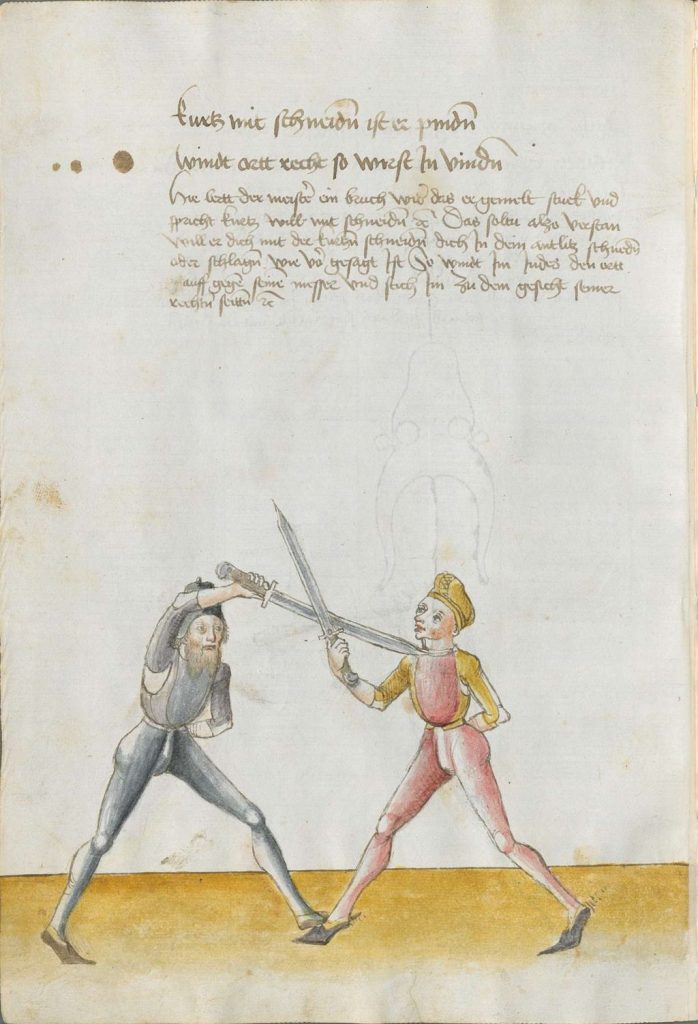 kurtz mit schneidn̄ ist er pindn̄
windt ortt recht so wirst In vindn̄
Hie lertt der maist͛ ein bruch wid͛ das er gemelt stuck vnd
spricht kurtz will mit schneidn̄ ⁊c̄ Das soltu also verstan
will er dich mit der kurtzn̄ schneidn̄ dich In dem antlitz schneidn̄
oder schlagn̄ wie vor gesagt ist So windt Im Indes den ortt
auff gegen seine messer vnd stich Im zu dem gesicht seiner
rechtn̄ seittn̄ ⁊c̄